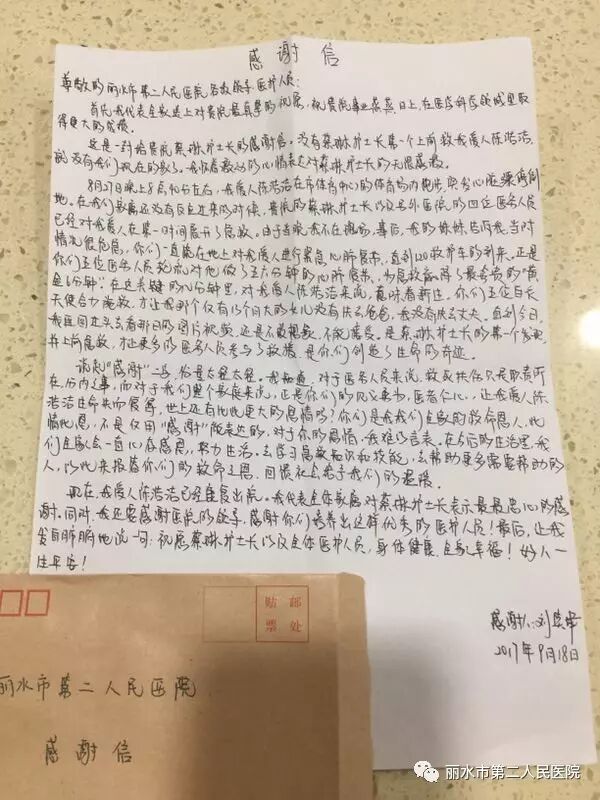 感谢信
尊敬的丽水市第二人民医院各级领导医护人员:
首先我代表全家送上对贵院最真挚的祝愿,祝贵院事业蒸蒸日上,在医疗科学领域里取
得更大的发展。
这是一封给贵院蔡琳护士长的感谢信。没有蔡琳护士长第一个上前救我爱人陈浩洁,
就没有我们现在的家了。我怀着激动的心情表达对蔡琳护士长的无限感激。
8月27日晚上8点10分左右,我爱人陈浩洁在市体育中心的体育场内跑步,突发心脏骤停倒
地。在我们家属还没有反应过来的时候,贵院的蔡琳护士长以及另外医院的四位医务人员
已经对我爱人在第一时间展开了急救。由于当晚我不在现场,事后,我的妹妹告诉我,当时
情况很危急,你们一直跪在地上对我爱人进行紧急心肺复苏,直到120救护车的到来。正是
你们五位医务人员轮流对他做了五六分钟的心肺复苏,为急救赢得了最宝贵的“黄
金6分钟”。在这关键的几分钟里,对我爱人陈浩洁来说,意味着新生。你们五位白衣
天使合力施救,才让我那个仅有15个月大的女儿没有失去爸爸,我没有失去丈夫。直到今日,
我再回过头去看那日的图片视频,还是不敢想象,不能感受。是蔡琳护士长的第一个发现
并上前急救,才让更多的医务人员参与了救援,是你们创造了生命的奇迹。
说起“感谢”一语,份量太轻太轻。我知道,对于医务人员来说,救死扶伤只是职责所
在,份内之事,而对于我们整个家庭来说,正是你们的见义勇为,医者仁心,让我爱人陈
浩洁生命失而复得,世上还有比此更大的恩情吗?你们是我们全家的救命恩人,此
情此恩,不是仅用“感谢”能表达的,对于你的恩情,我难以言表。在今后的生活里,我
们全家会一直心存感恩,努力生活,去学习急救知识和技能,去帮助更多需要帮助的
人,以此来报答你们的救命之恩,回馈社会给予我们的温暖。
现在,我爱人陈浩洁已经康复出院。我代表全体家属对蔡琳护士长表示最最忠心的感
谢。同时,我还要感谢医院的领导,感谢你们培养出这样优秀的医护人员!最后,让我
发自肺腑地说一句:祝愿蔡琳护士长以及全体医护人员,身体健康,全家幸福!好人一
生平安!
感谢人:刘
2017年9月18日
贴邮
票处
丽水市第二人民医院
感谢信
丽水市第二人民医院